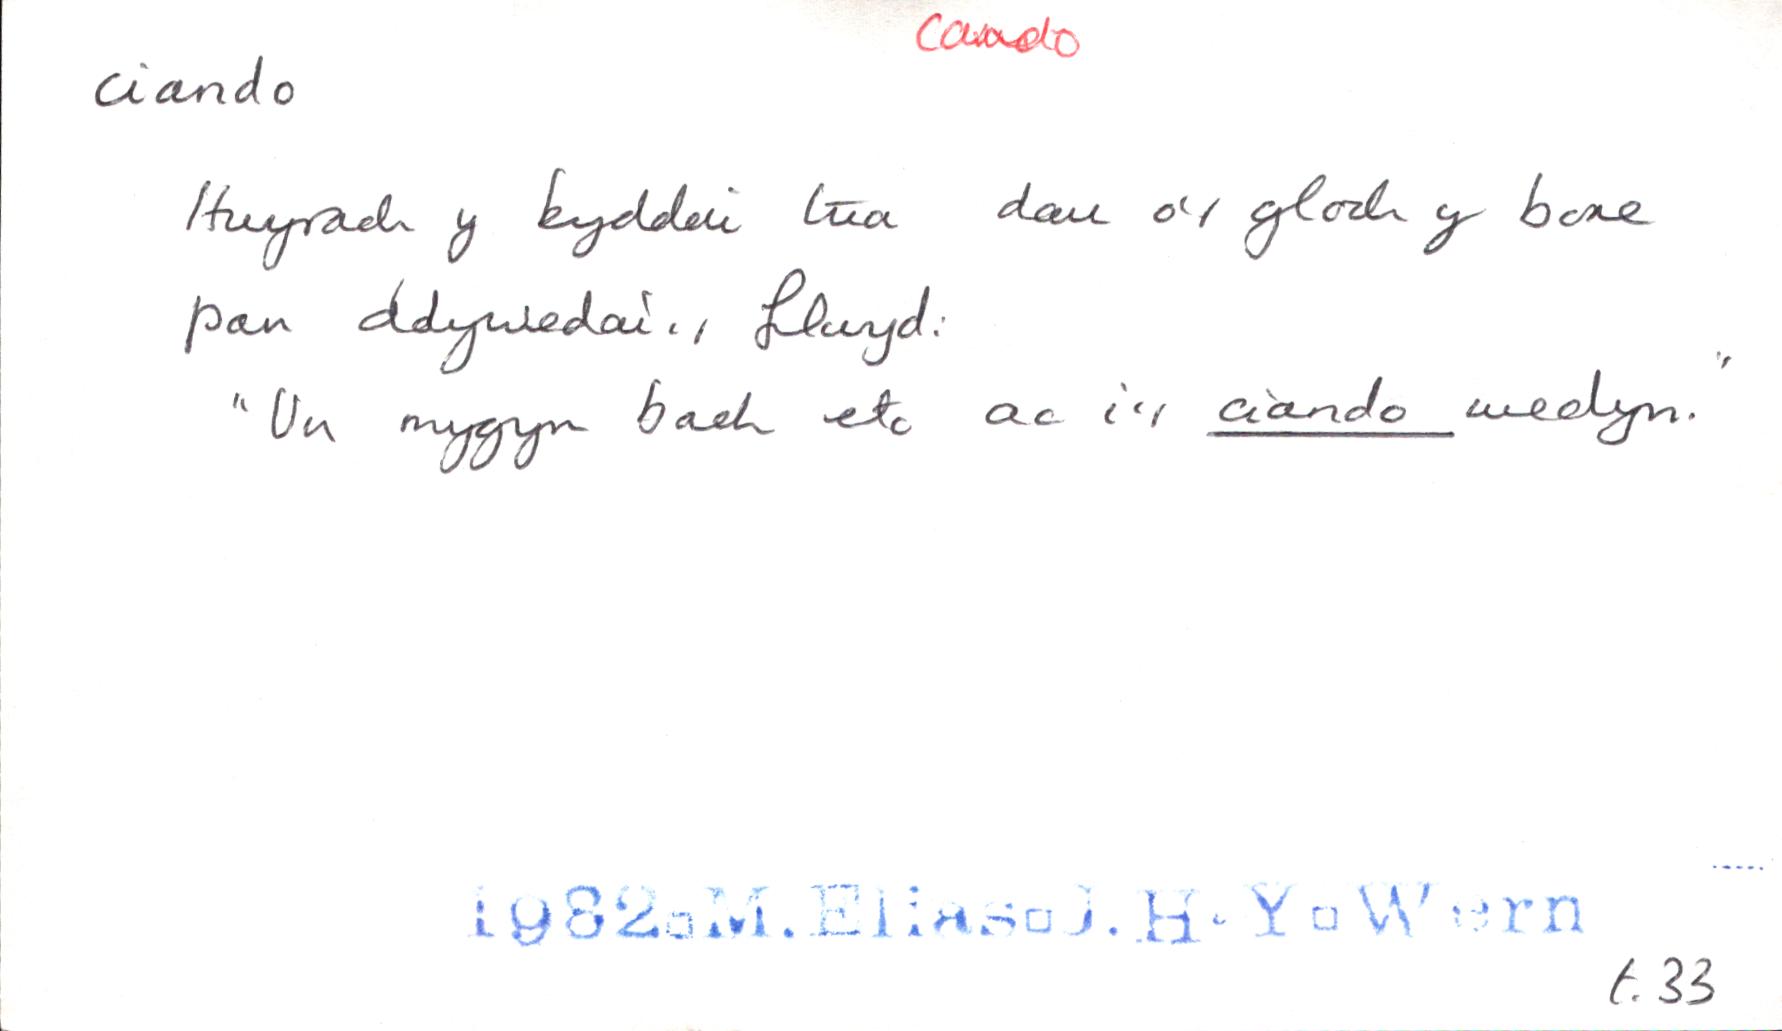 cando
ciando
Hwyrach y byddai tua dau o'r gloch y bore
pan ddywedai'r Llwyd:
"Un mygyn bach etc ac i'r ciando wedyn."
1982□M.Elias□J.H.Y□Wern
t. 33